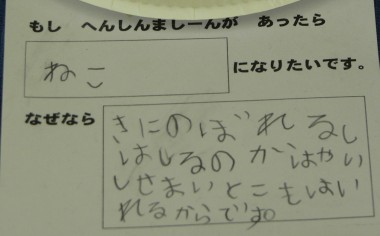 もし へんしんましーんが あったら
ねこ
になりたいです。
なぜなら
きにのぼれるし
はしるのがはやい
しせまいとこもはい
れるからです。